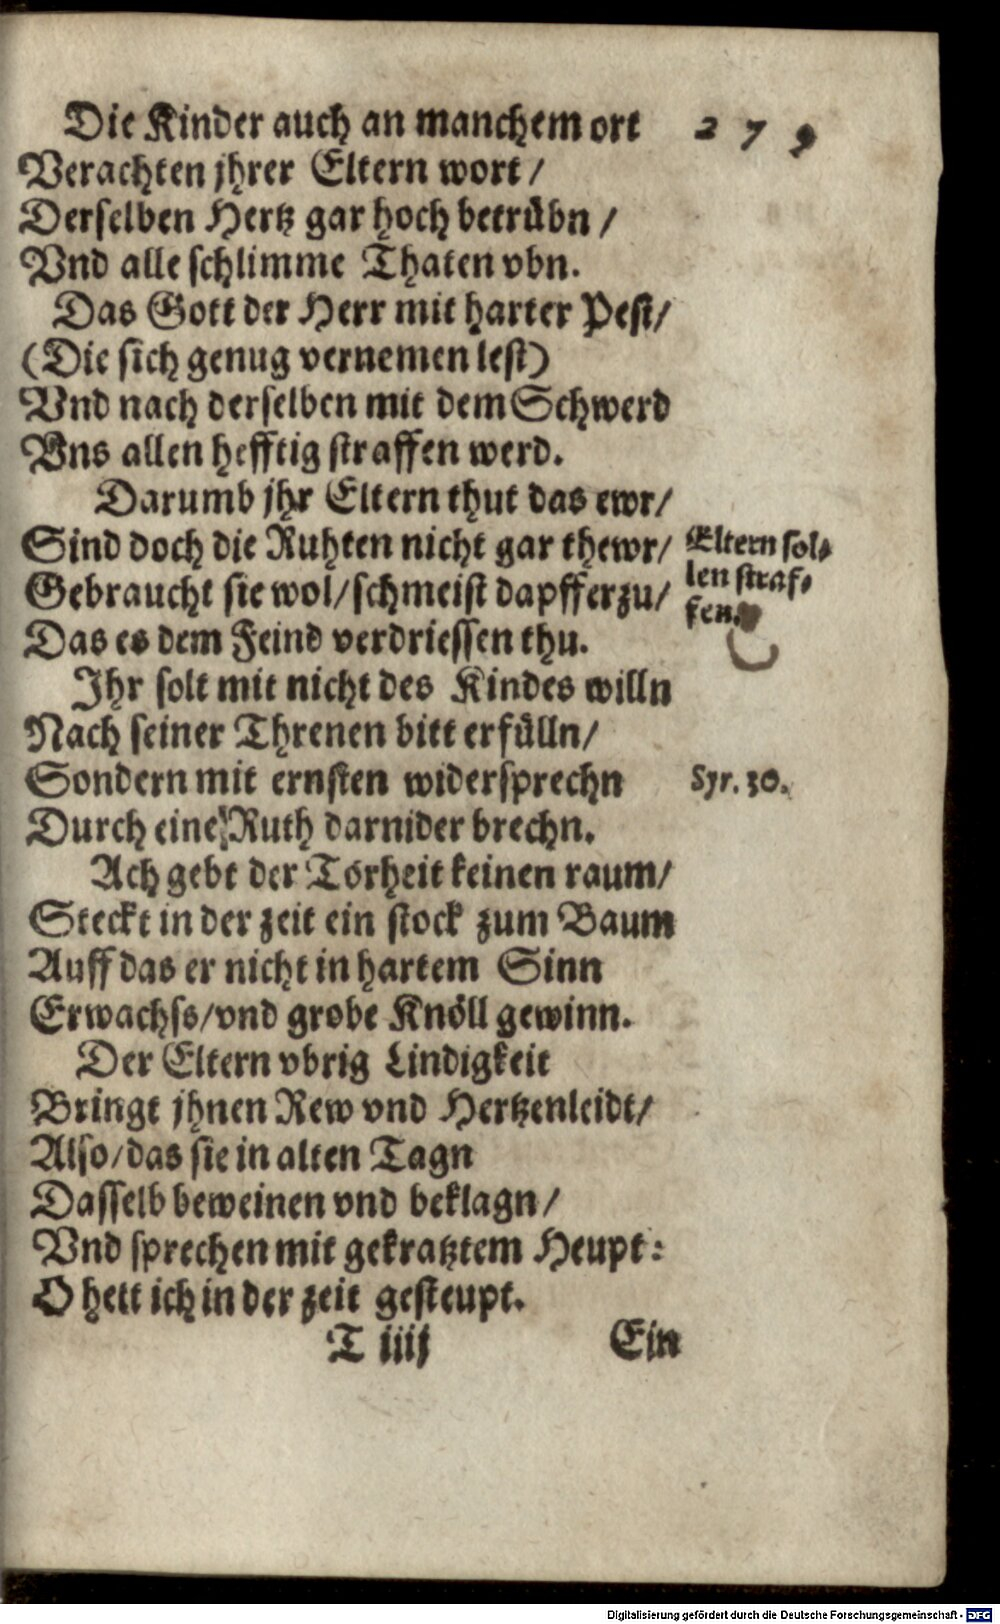 Die Kinder auch an manchem ort
279
Verachten jhrer Eltern wort /
Derselben Hertz gar hoch betrübn /
Vnd alle schlimme Thaten vbn.
Das Gott der Herr mit harter Pest /
(Die sich genug vernemen lest)
Vnd nach derselben mit dem Schwerd
Vns allen hefftig straffen werd.
Darumb jhr Eltern thut das ewr /
Sind doch die Ruhten nicht gar thewr /
Gebraucht sie wol / schmeist dapffer zu /
Das es dem Feind verdriessen thu.
Eltern sol-
len straf-
fen.
Jhr solt mit nicht des Kindes willn
Nach seiner Threnen bitt erfülln /
Sondern mit ernsten widersprechn
Syr. 30.
Durch eine Ruth darnider brechn.
Ach gebt der Torheit keinen raum /
Steckt in der zeit ein stock zum Baum
Auff das er nicht in hartem Sinn
Erwachss / vnd grobe Knöll gewinn.
Der Eltern vbrig Lindigkeit
Bringt jhnen Rew vnd Hertzenleidt /
Also / das sie in alten Tagn
Dasselb beweinen vnd beklagn /
Vnd sprechen mit gekratztem Heupt:
O hett ich in der zeit gesteupt.
T iiij
Ein
Digitalisierung gefördert durch die Deutsche Forschungsgemeinschaft - DFG